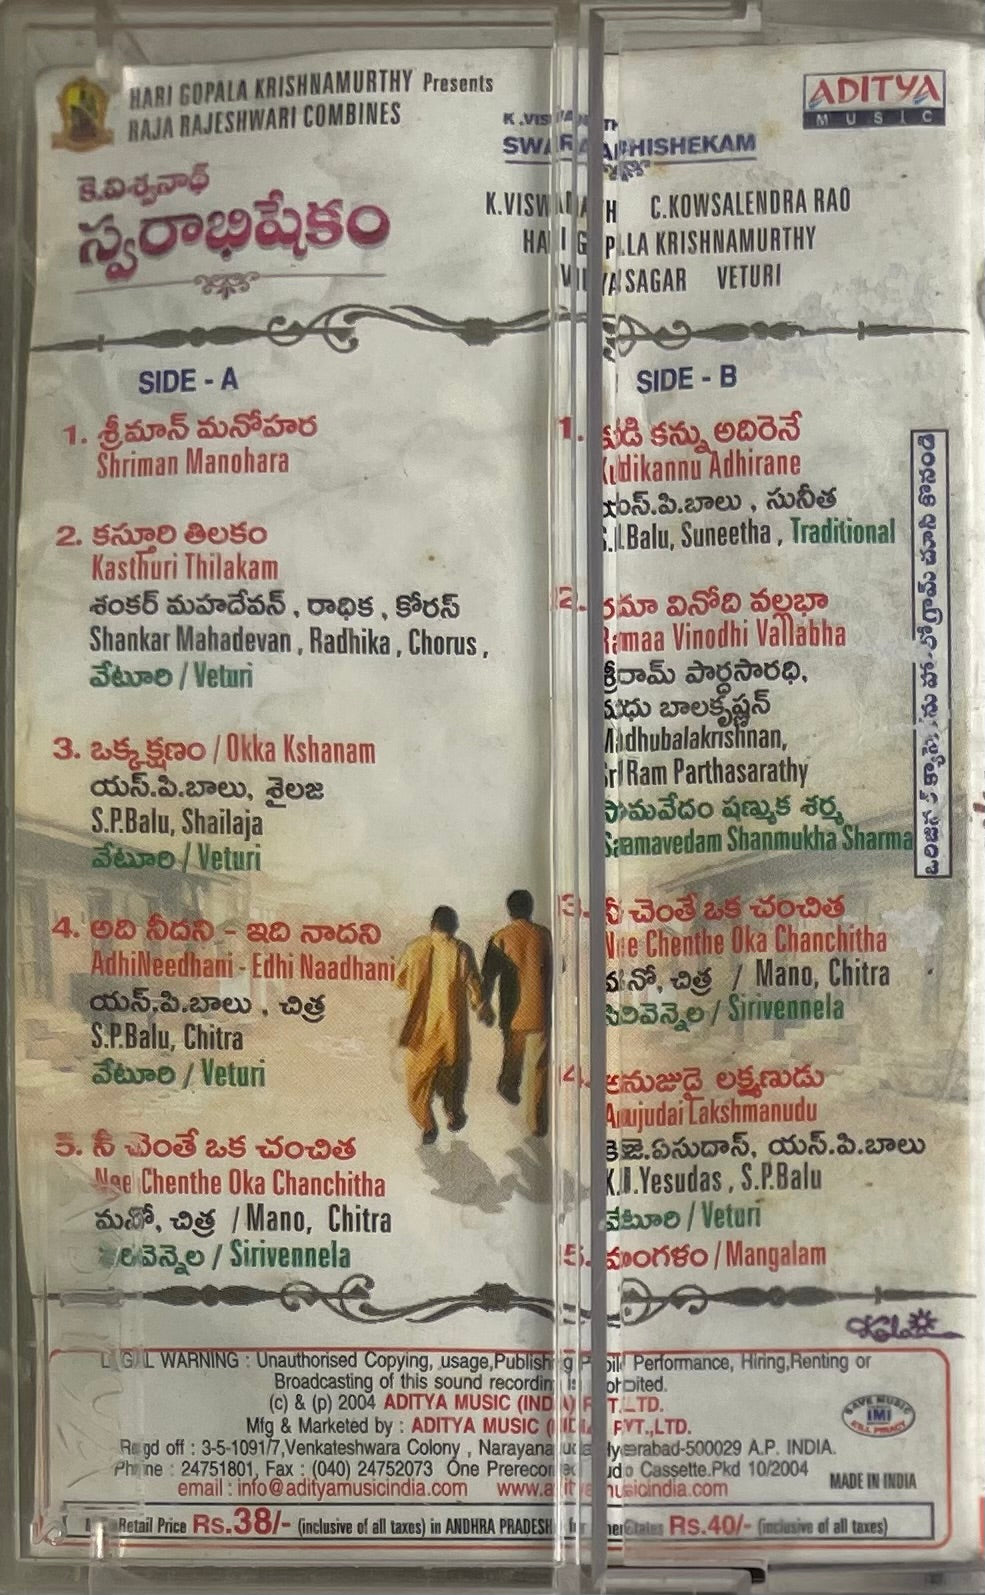 HARI GOPALA KRISHNAMURTHY Presents
RAJA RAJESHWARI COMBINES
కె.విశ్వనాథ్
స్వరాభిషేకం
ADITYA
MUSIC
K.VISWANATH
SWARAABHISHEKAM
K.VISWANATH C.KOWSALENDRA RAO
HARI GOPALLA KRISHNAMURTHY
VIDYASAGAR VETURI
SIDE - A
1. శ్రీమాన్ మనోహర
Shriman Manohara
2. కస్తూరి తిలకం
Kasthuri Thilakam
శంకర్ మహదేవన్ , రాధిక , కోరస్
Shankar Mahadevan , Radhika , Chorus ,
వేటూరి / Veturi
3. ఒక్క క్షణం / Okka Kshanam
యస్.పి.బాలు, శైలజ
S.P.Balu, Shailaja
వేటూరి / Veturi
4. అది నీదని - ఇది నాదని
AdhiNeedhani - Edhi Naadhani
యస్.పి.బాలు , చిత్ర
S.P.Balu, Chitra
వేటూరి / Veturi
5. నీ చెంతే ఒక చంచిత
Nee Chenthe Oka Chanchitha
మనో, చిత్ర / Mano, Chitra
సిరివెన్నెల / Sirivennela
SIDE - B
1. కుడి కన్ను అదిరెనే
Kudikannu Adhirane
యస్.పి.బాలు , సునీత
S.P.Balu, Suneetha , Traditional
2. రమా వినోది వల్లభా
Ramaa Vinodhi Vallabha
శ్రీరామ్ పార్ధసారధి,
మధు బాలకృష్ణన్
Madhubalakrishnan,
Sri Ram Parthasarathy
సామవేదం షణ్ముక శర్మ
Saamavedam Shanmukha Sharma
3. నీ చెంతే ఒక చంచిత
Nee Chenthe Oka Chanchitha
మనో, చిత్ర / Mano, Chitra
సిరివెన్నెల / Sirivennela
4. అనుజుడై లక్ష్మణుడు
Anujudai Lakshmanudu
కె.జె.ఏసుదాస్, యస్.పి.బాలు
K.J.Yesudas , S.P.Balu
వేటూరి / Veturi
5. మంగళం / Mangalam
LEGAL WARNING : Unauthorised Copying, usage,Publishing Public Performance, Hiring,Renting or
Broadcasting of this sound recording is prohibited.
(c) & (p) 2004 ADITYA MUSIC (INDIA) PVT.LTD.
Mfg & Marketed by : ADITYA MUSIC (INDIA) PVT.,LTD.
Regd off : 3-5-1091/7,Venkateshwara Colony , Narayanaguda Hyderabad-500029 A.P. INDIA.
Phone : 24751801, Fax : (040) 24752073 One Prerecorded Audio Cassette.Pkd 10/2004
email : info@adityamusicindia.com www.adityamusicindia.com
SAVE MUSIC
IMI
KILL PIRACY
MADE IN INDIA
Retail Price Rs.38/- (inclusive of all taxes) in ANDHRA PRADESH for other States Rs.40/- (inclusive of all taxes)